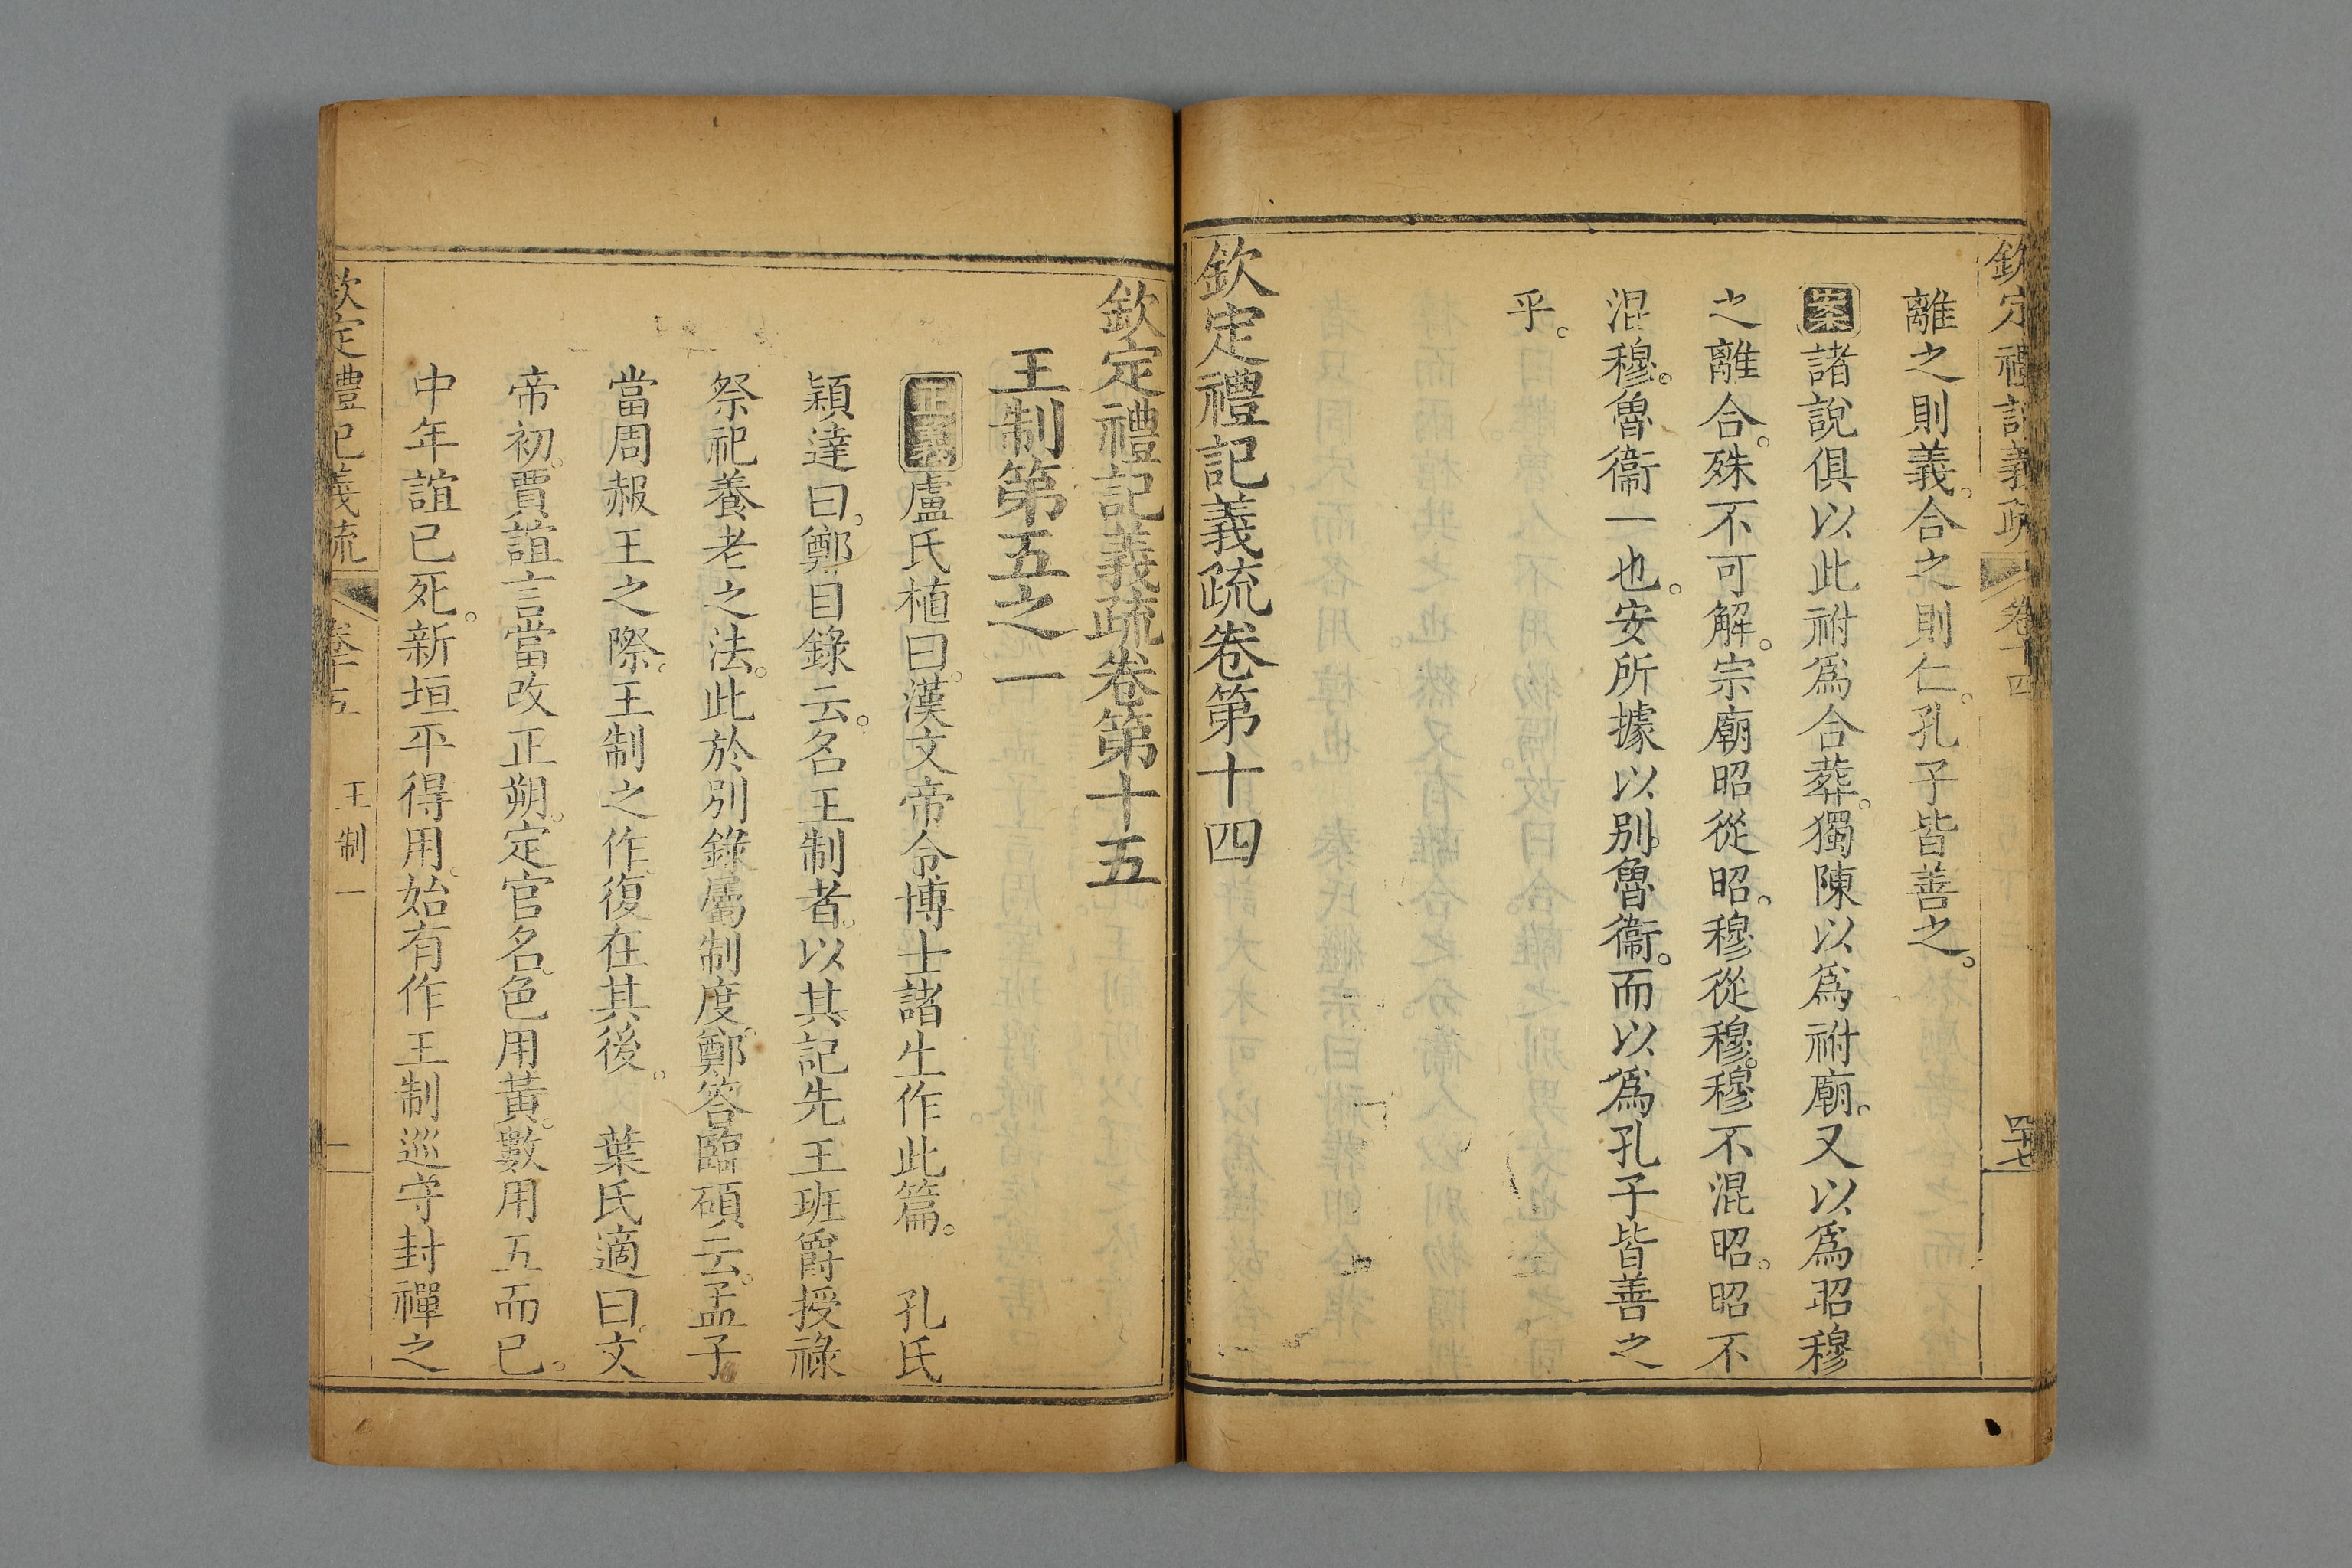 欽定禮記義疏 卷十四 四十七
離之則義。合之則仁。孔子皆善之。
案諸說俱以此祔爲合葬。獨陳以爲祔廟。又以爲昭穆
之離合。殊不可解。宗廟昭從昭。穆從穆。穆不混昭。昭不
混穆。魯衞一也。安所據以別魯衞。而以爲孔子皆善之
乎。
欽定禮記義疏卷第十四
欽定禮記義疏卷第十五
王制第五之一
正義盧氏植曰。漢文帝令博士諸生作此篇。 孔氏
穎達曰。鄭目錄云。名王制者。以其記先王班爵授祿
祭祀養老之法。此於別錄屬制度。鄭答臨碩云。孟子
當周赧王之際。王制之作。復在其後。 葉氏適曰。文
帝初。賈誼言當改正朔。定官名。色用黃。數用五而已。
中年誼已死。新垣平得用。始有作王制巡守封禪之
欽定禮記義疏 卷十五 王制一 一